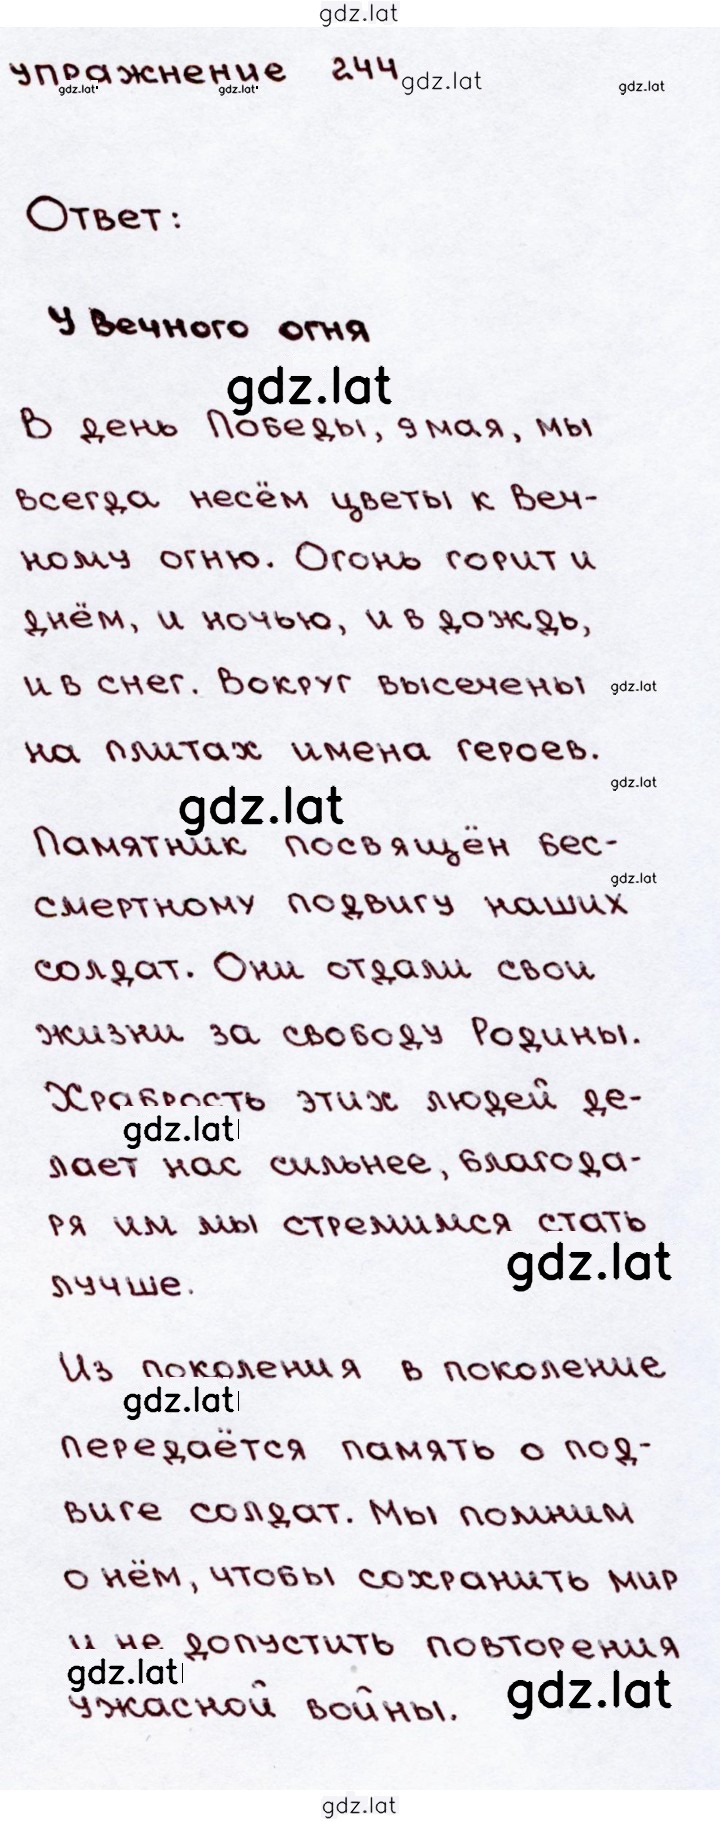 gdz.lat
упражнение 244
gdz.lat
gdz.lat
gdz.lat
gdz.lat
Ответ:
У Вечного огня
gdz.lat
В день Победы, 9 мая, мы
всегда несём цветы к Веч-
ному огню. Огонь горит и
днём, и ночью, и в дождь,
и в снег. Вокруг высечены
gdz.lat
на плитах имена героев.
gdz.lat
gdz.lat
Памятник посвящён бес-
gdz.lat
смертному подвигу наших
солдат. Они отдали свои
жизни за свободу Родины.
Храбрость этих людей де-
gdz.lat
лает нас сильнее, благода-
ря им мы стремимся стать
gdz.lat
лучше.
Из поколения в поколение
gdz.lat
передаётся память о под-
виге солдат. Мы помним
о нём, чтобы сохранить мир
и не допустить повторения
gdz.lat
gdz.lat
ужасной войны.
gdz.lat